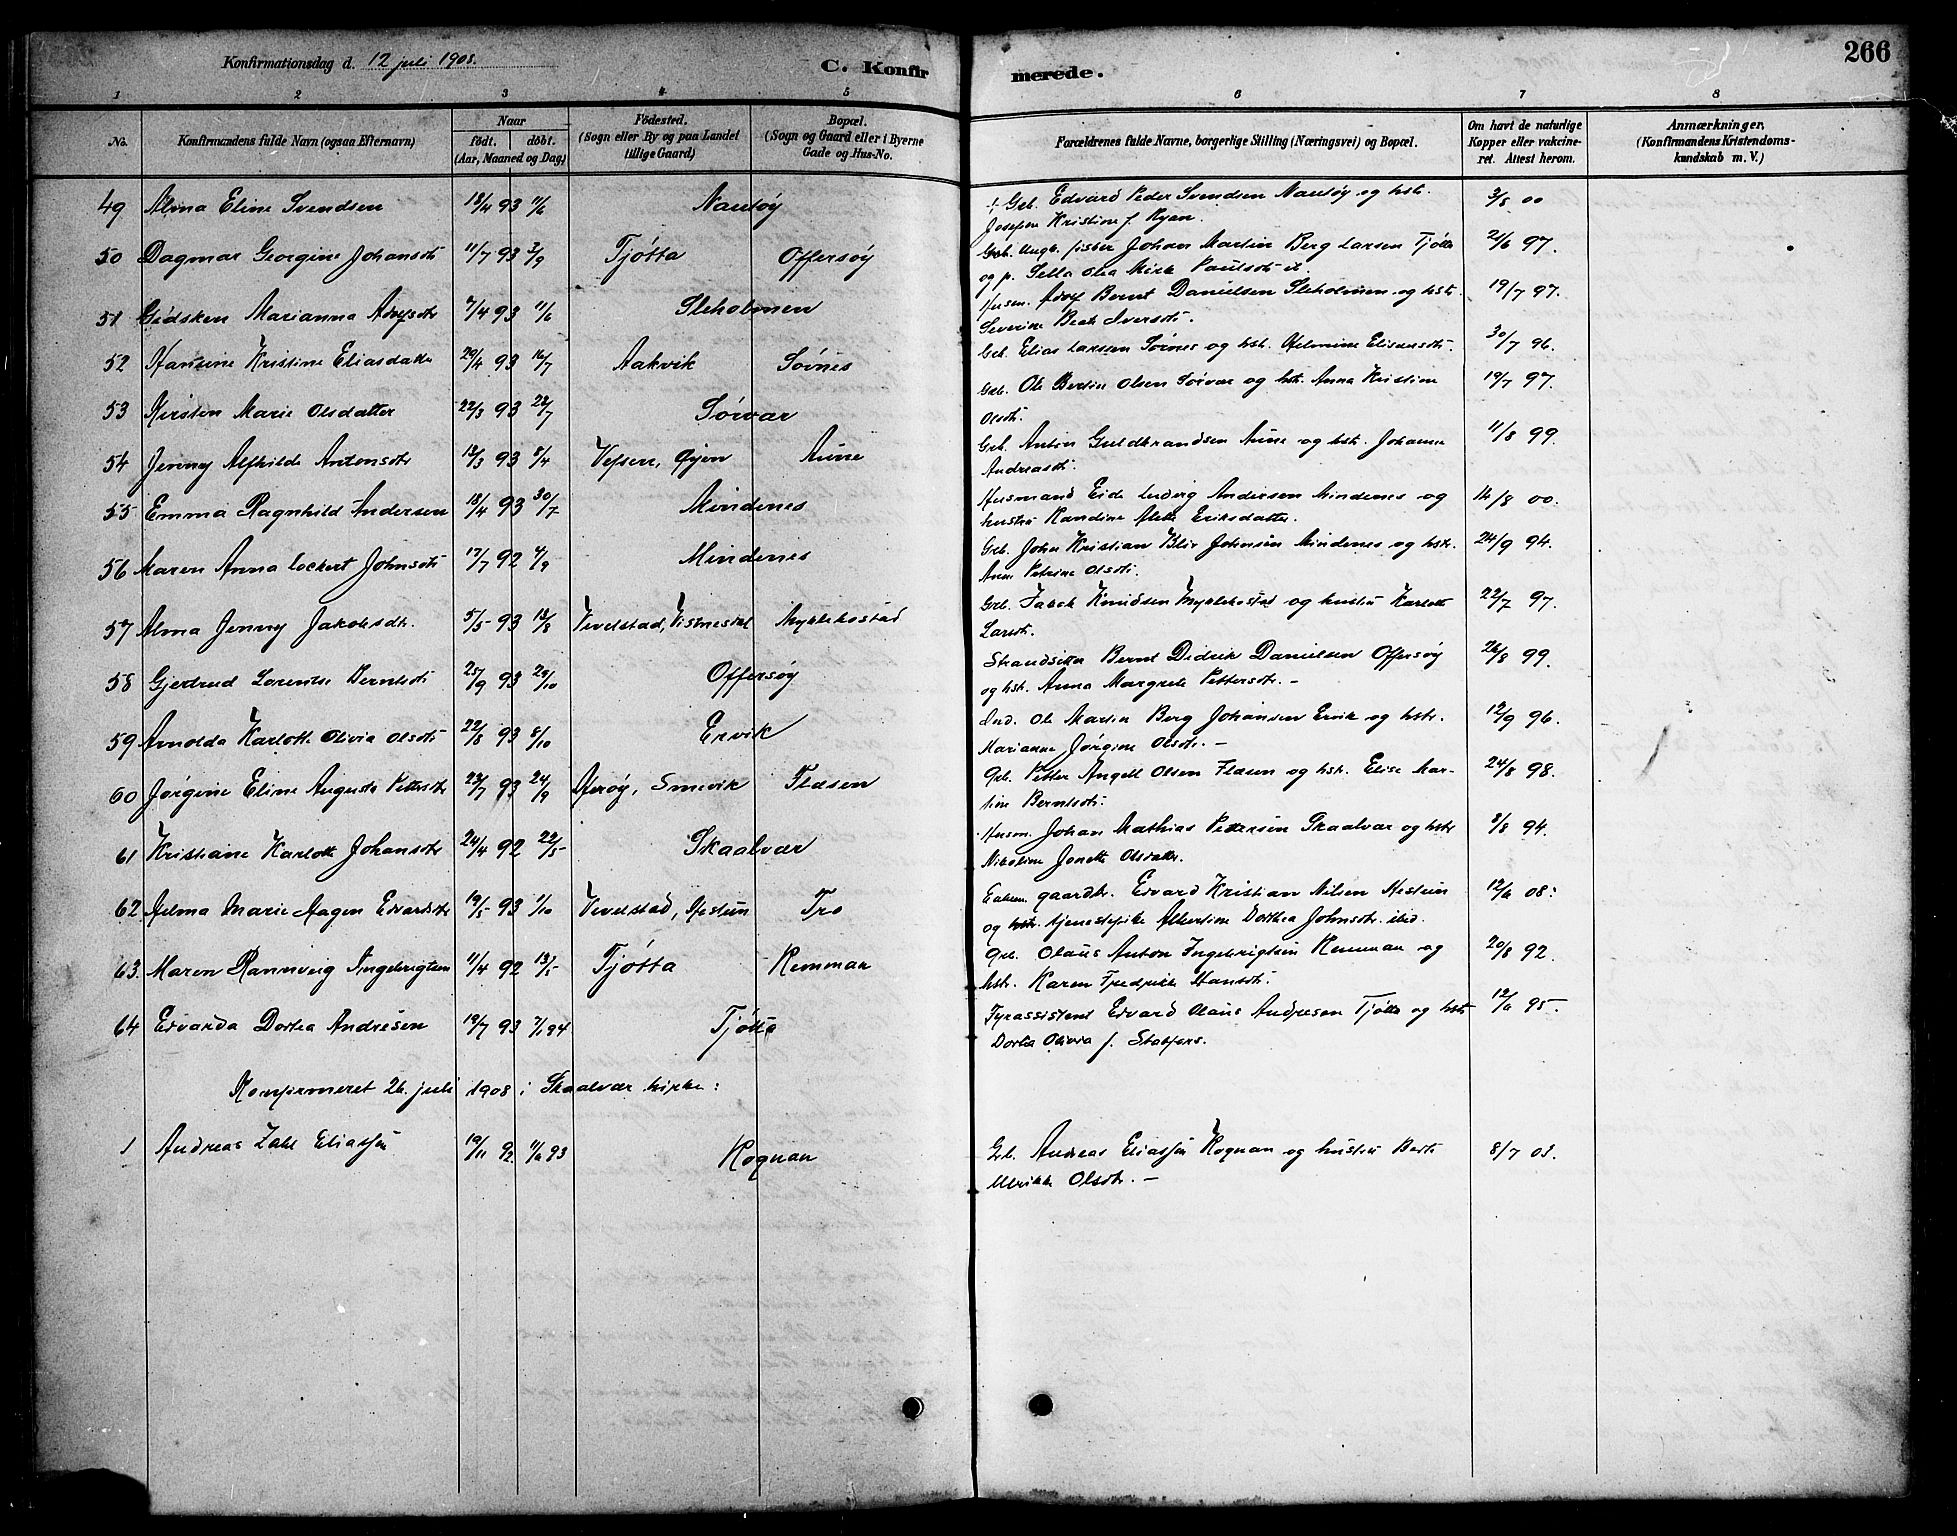 Konfirmationsdag d. 12 juli 1908.
C. Konfirmerede.
266
1 2 3 4 5 6 7 8
No.
Konfirmandens fulde Navn (ogsaa Efternavn)
Naar
født. døbt.
(Aar, Maaned og Dag)
Fødested.
(Sogn eller By og paa Landet
tillige Gaard)
Bopæl.
(Sogn og Gaard eller i Byerne
Gade og Hus-No.
Forældrenes fulde Navne, borgerlige Stilling (Næringsvei) og Bopæl.
Om havt de naturlige
Kopper eller vakcine-
ret. Attest herom.
Anmærkninger.
(Konfirmandens Kristendoms-
kundskab m. V.)
49 Alma Eline Svendsen 18/4 93 11/6 Nautøy + Gbr. Edvard Peder Svendsen Nautøy og hstr. 3/8 00
Josefine Kristine f. Ryan.
50 Dagmar Georgine Johansdt 11/7 93 3/9 Tjøtta Offersøy Ungk. fisker Johan Martin Berg Larsen Tjøtta 21/6 97.
og p. Sella Olea Paulsdt.
51 Gidsken Marianna Adolfsdtr 7/4 93 11/6 Sleholmen Husm. Adolf Bernt Danielsen Sleholmen og hstr. 19/7 97.
Severine Beck Iversdt.
52 Hansine Kristine Eliasdatter 29/4 93 16/7 Aakvik Sørnes Gbr. Elias Larsen Sørnes og hstr. Elisensdt. 30/7 96.
53 Kirsten Marie Olsdatter 22/3 93 23/7 Sørvar Gbr. Ole Bertin Olsen Sørvar og hstr. Anna Kristine 19/7 97.
Olsdt.
54 Jenny Alfhilde Antonsdtr 13/3 93 8/4 Vefsen, Øyen Aune Gbr. Anton Guldbrandsen Aune og hstr. Johanna 11/8 99.
Andreasdt.
55 Emma Ragnhild Andersen 18/4 93 30/7 Mindenes Husmand Eide Ludvig Andersen Mindenes og 14/8 00.
hustru Kandine Alette Eriksdatter.
56 Maren Anna Lockert Johnsdt 17/7 92 4/9 Mindenes Gbr. John Kristian Blix Johnsen Mindenes og hstr. 24/9 94.
Anne Petrine Olsdt.
57 Alma Jenny Jakobsdt. 5/5 93 13/8 Vevelstad, Visthesdal Myklebostad Gbr. Jakob Knudsen Myklebostad og hustru Karlotte 22/7 97.
Larsdt.
58 Gjertrud Lorentse Berntsdt 25/9 93 29/10 Offersøy Strandsitter Bernt Didrik Danielsen Offersøy 26/8 99.
og hstr. Anna Margrete Pettersdtr. -
59 Arnolda Karlotte Olivia Olsdt 22/8 93 8/10 Ervik Ind. Ole Martin Berg Johansen Ervik og hstr. 12/9 96.
Marianne Jørgine Olsdtr. -
60 Jørgine Eline Augusta Pettersdtr 23/7 93 24/9 Herøy, Smevik Flæsen Gbr. Petter Angell Olsen Flæsen og hstr. Elise Mar- 24/8 98.
tine Berntsdt.
61 Kristiane Karlotte Johansdtr 24/4 92 22/5 Skaalvær Husm. Johan Mathias Pettersen Skaalvær og hstr 8/8 94.
Nikoline Jonette Olsdatter.
62 Helma Marie Hagen Edvardsdtr 19/5 93 1/10 Vevelstad, Hestun Tro gaardbr. Edvard Kristian Nilsen Hestun 12/6 08.
og tjenestepike Albertine Dorthea Johnsdtr. ibid.
63. Maren Rannveig Ingebrigtsen 11/4 92 13/5 Tjøtta Remman Gbr. Olaus Anton Ingebrigtsen Remman og 20/8 92.
hstr. Karen Fredrikke Hansdt.
64 Edvarda Dortea Andresen 19/7 93 7/1 94 Tjøtta Fyrassistent Edvard Olaus Andresen Tjøtta og hstr 12/6 95.
Dortea Olivia f. Stabfors.
Konfirmeret 26. juli 1908 i Skaalvær kirke:
1 Andreas Zahl Eliassen 19/11 92. 11/6 93 Rognan Gbr. Andreas Eliassen Rognan og hustru Berte 8/7 03.
Ulrikke Olsdtr. -